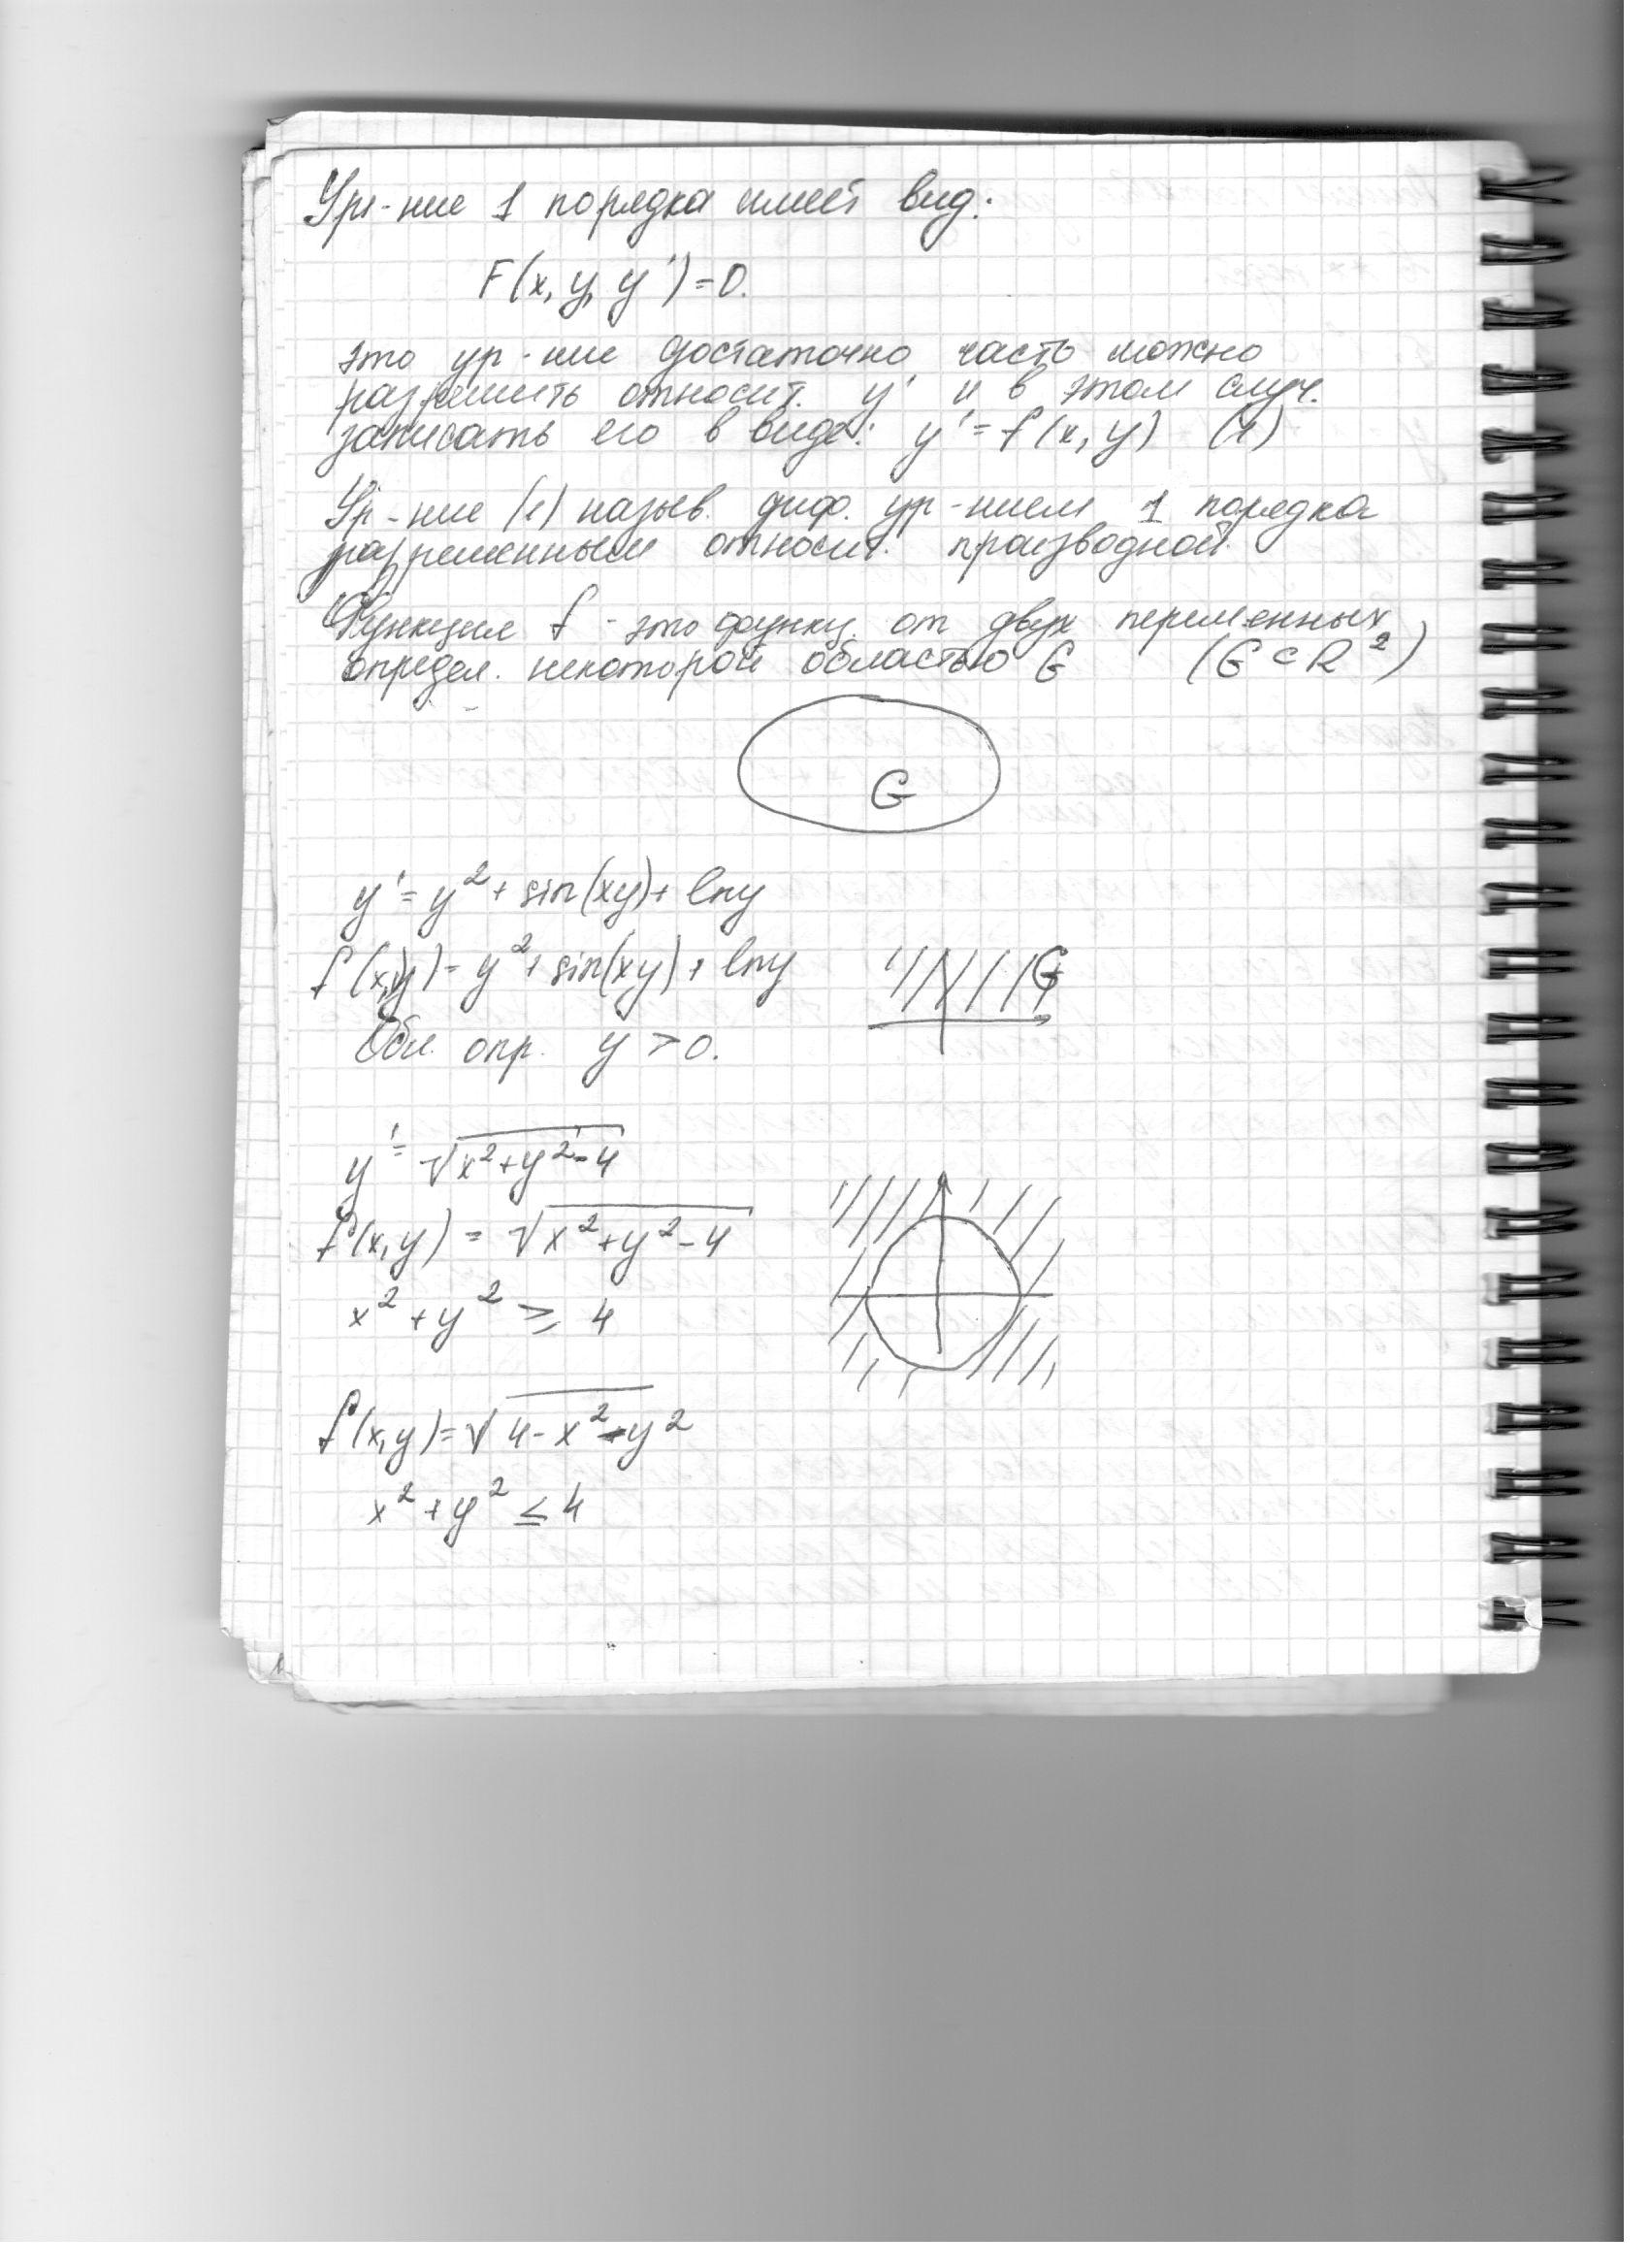 Ур-ние 1 порядка имеет вид:
F(x, y, y')=0.
это ур-ние достаточно часть можно
разрешить относит. y' и в этом случ.
записать его в виде: y'=f(x,y) (1)
Ур-ние (1) назыв. диф. ур-нием 1 порядка
разрешенным относит. производной.
Функция f - это функц. от двух переменных
определ. некоторой областью G (G⊂R²)
G
y'=y²+sin(xy)+lny
f(x,y)=y²+sin(xy)+lny
G
Обл. опр. y>0.
y'=√x²+y²-4
f(x,y)=√x²+y²-4
x²+y² ≥ 4
f(x,y)=√4-x²-y²
x²+y² ≤ 4